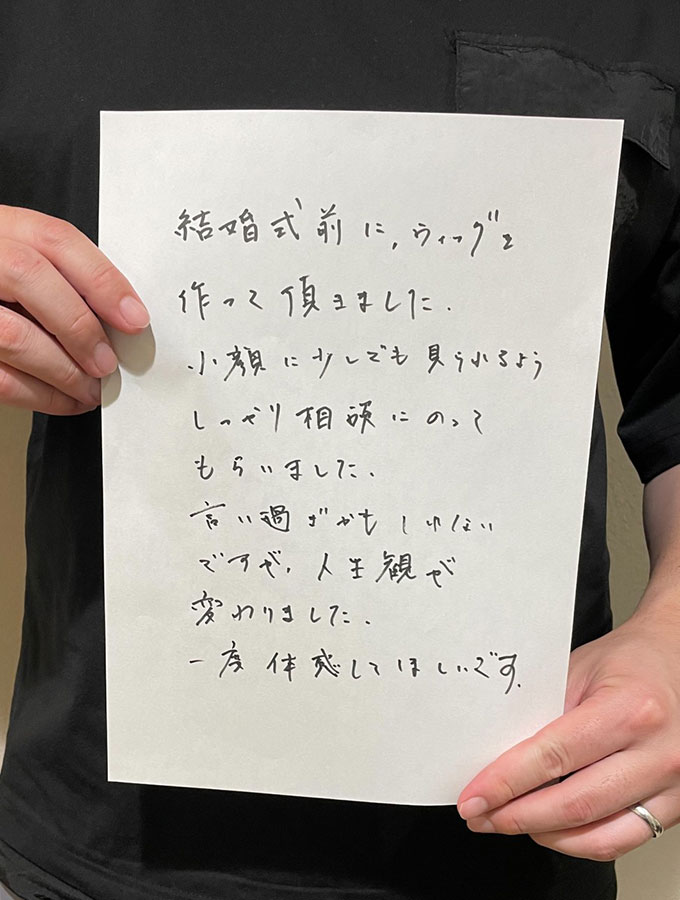 結婚式前に,ウィッグを
作って頂きました.
小顔に少しでも見られるよう
しっかり相談にのって
もらいました.
言い過ぎかもしれない
ですが,人生観が
変わりました.
一度体感してほしいです.